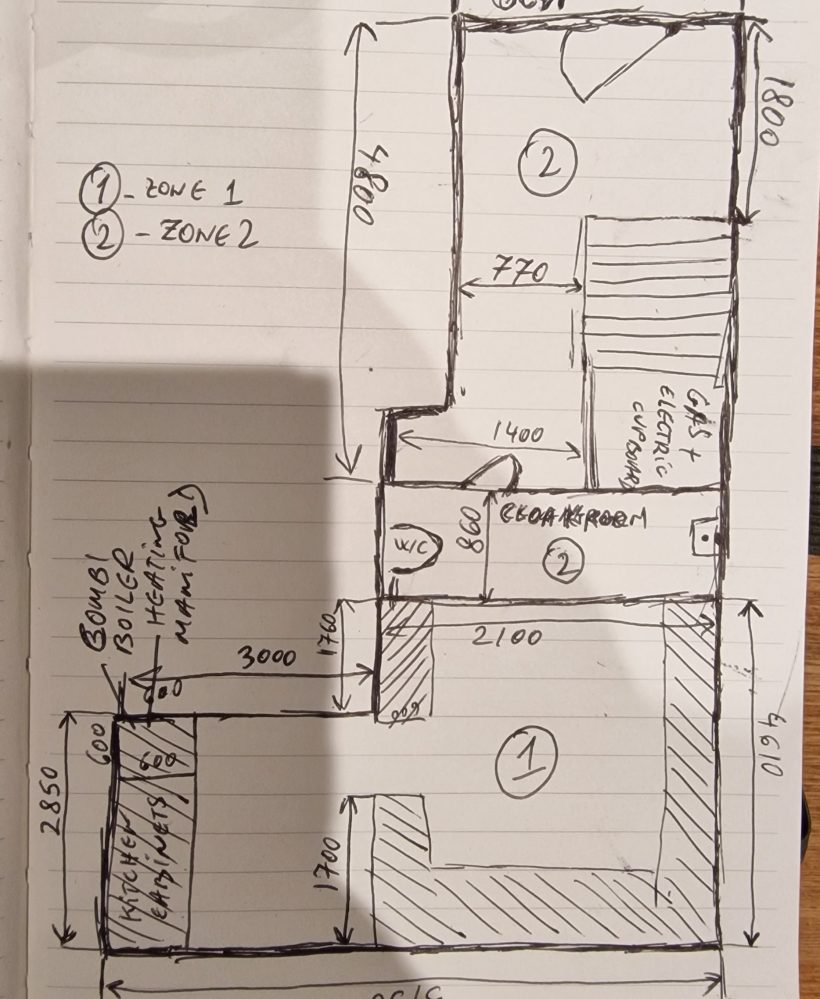 1800
4800
2
1 - ZONE 1
2 - ZONE 2
770
GAS +
ELECTRIC
CUPBOARD
1400
W/C
860
CLOAKROOM
2
2100
1760
BOMBI
BOILER
HEATING
MANIFOLD
3000
600
600
600
600
1
4610
2850
KITCHEN
CABINETS
1700